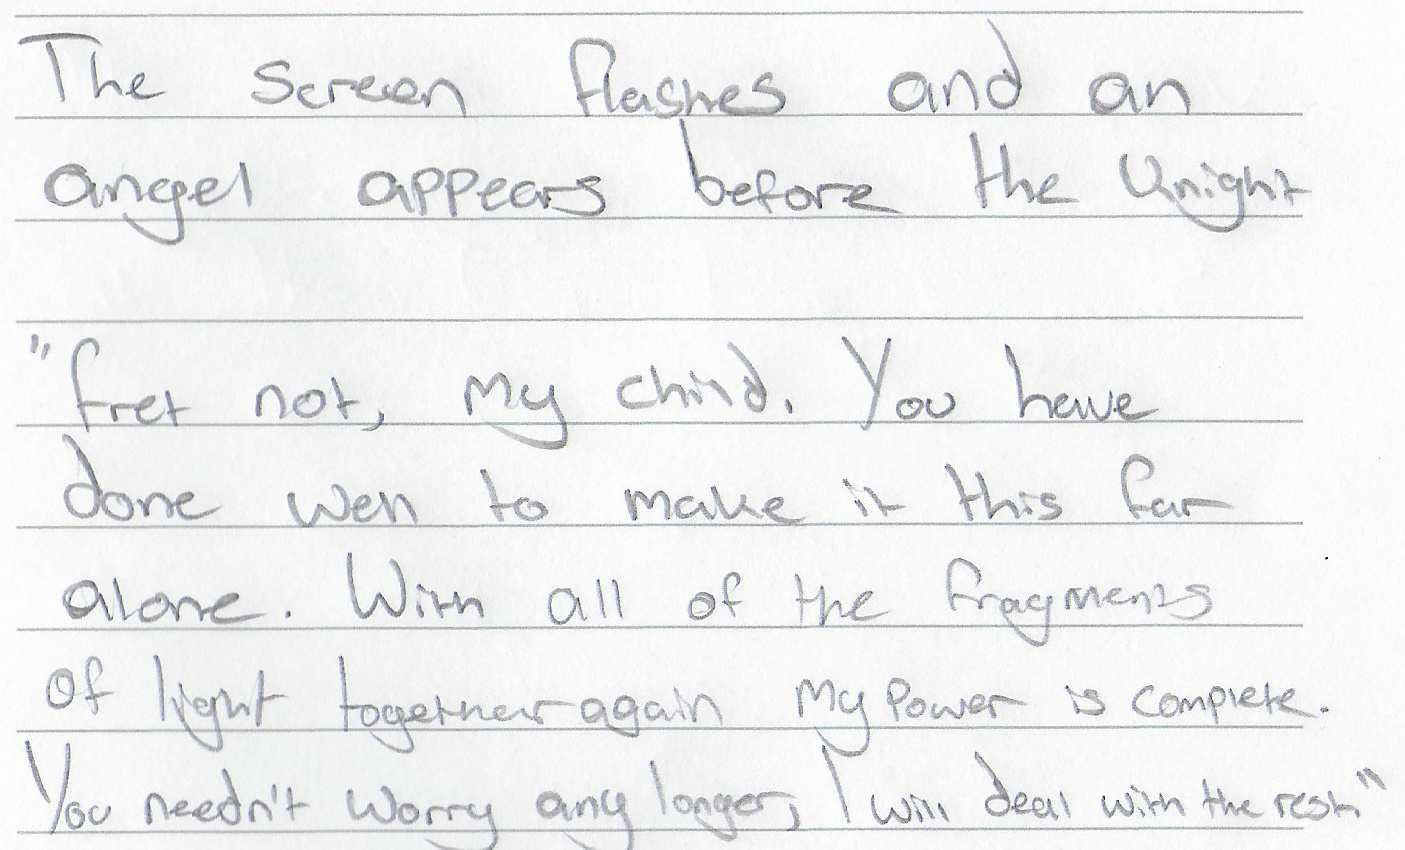 The screen flashes and an
angel appears before the Knight
"fret not, my child. You have
done well to make it this far
alone. With all of the fragments
of light together again my power is complete.
You needn't worry any longer, I will deal with the rest"